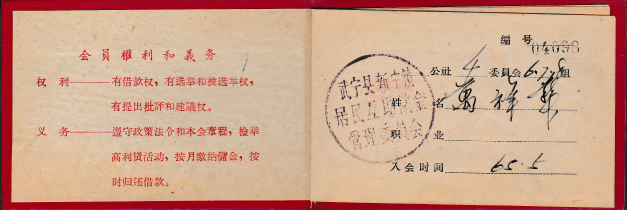 会员權利和義务
权利——有借款权，有选举和被选举权，
有提出批評和建議权。
义务——遵守政策法令和本会章程，檢举
高利貸活动，按月缴纳储金，按
时归还借款。
编号 04098
公社 委員会 组
姓名
职业
入会时间 65.5
武宁县新宁鎮
居民互助储金
管理委員会